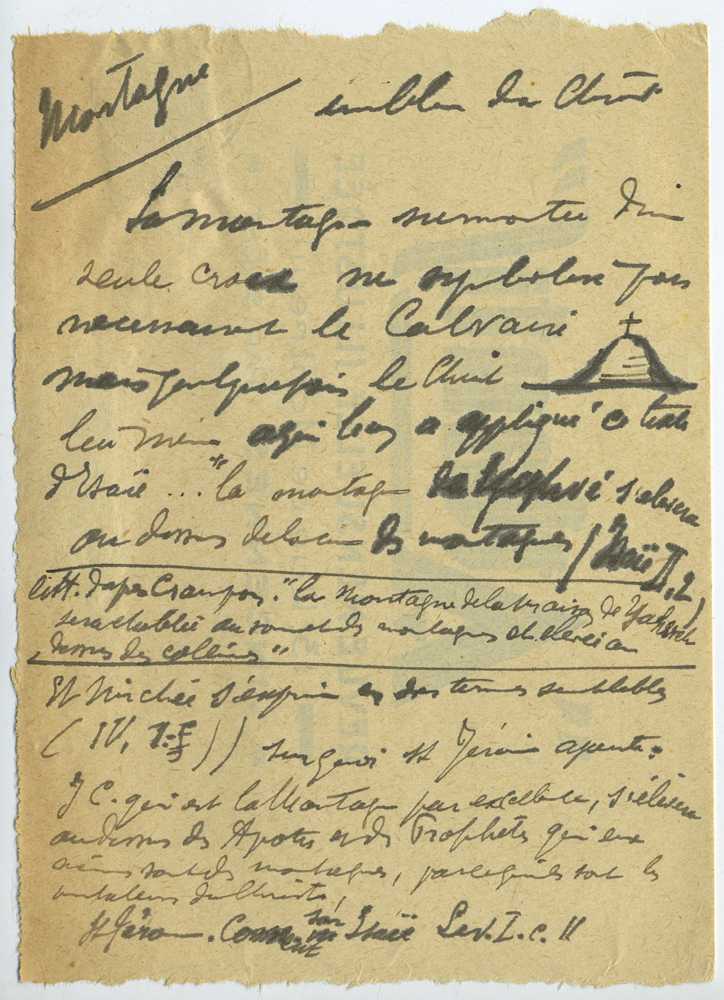 Montagne
emblem du Christ
La montagne surmontée d'une
seule croix ne symbolise pas
necessairement le Calvaire
mais quelquefois le Christ
lui même a qui l'on a appliqué ce texte
d'Isaïe ... "la montagne de Yahvé s'elevera
au dessus de la cime des montagnes (Isaïe II, 2)
litt. d'apres Crampon. "la montagne de la maison de Yahweh
sera etablie au sommet des montagnes et elevée au
dessus des collines"
Et Michée s'exprime en des termes semblables
(IV, 1-
sur quoi St Jérôme ajoute :
J C. qui est la Montagne par excellence, s'élèvera
au dessus des Apotres et des Prophètes qui eux
aussi sont des montagnes, parce qu'ils sont les
du Christ,
St Jérome. Comment sur Isaïe Lev. I. c. II